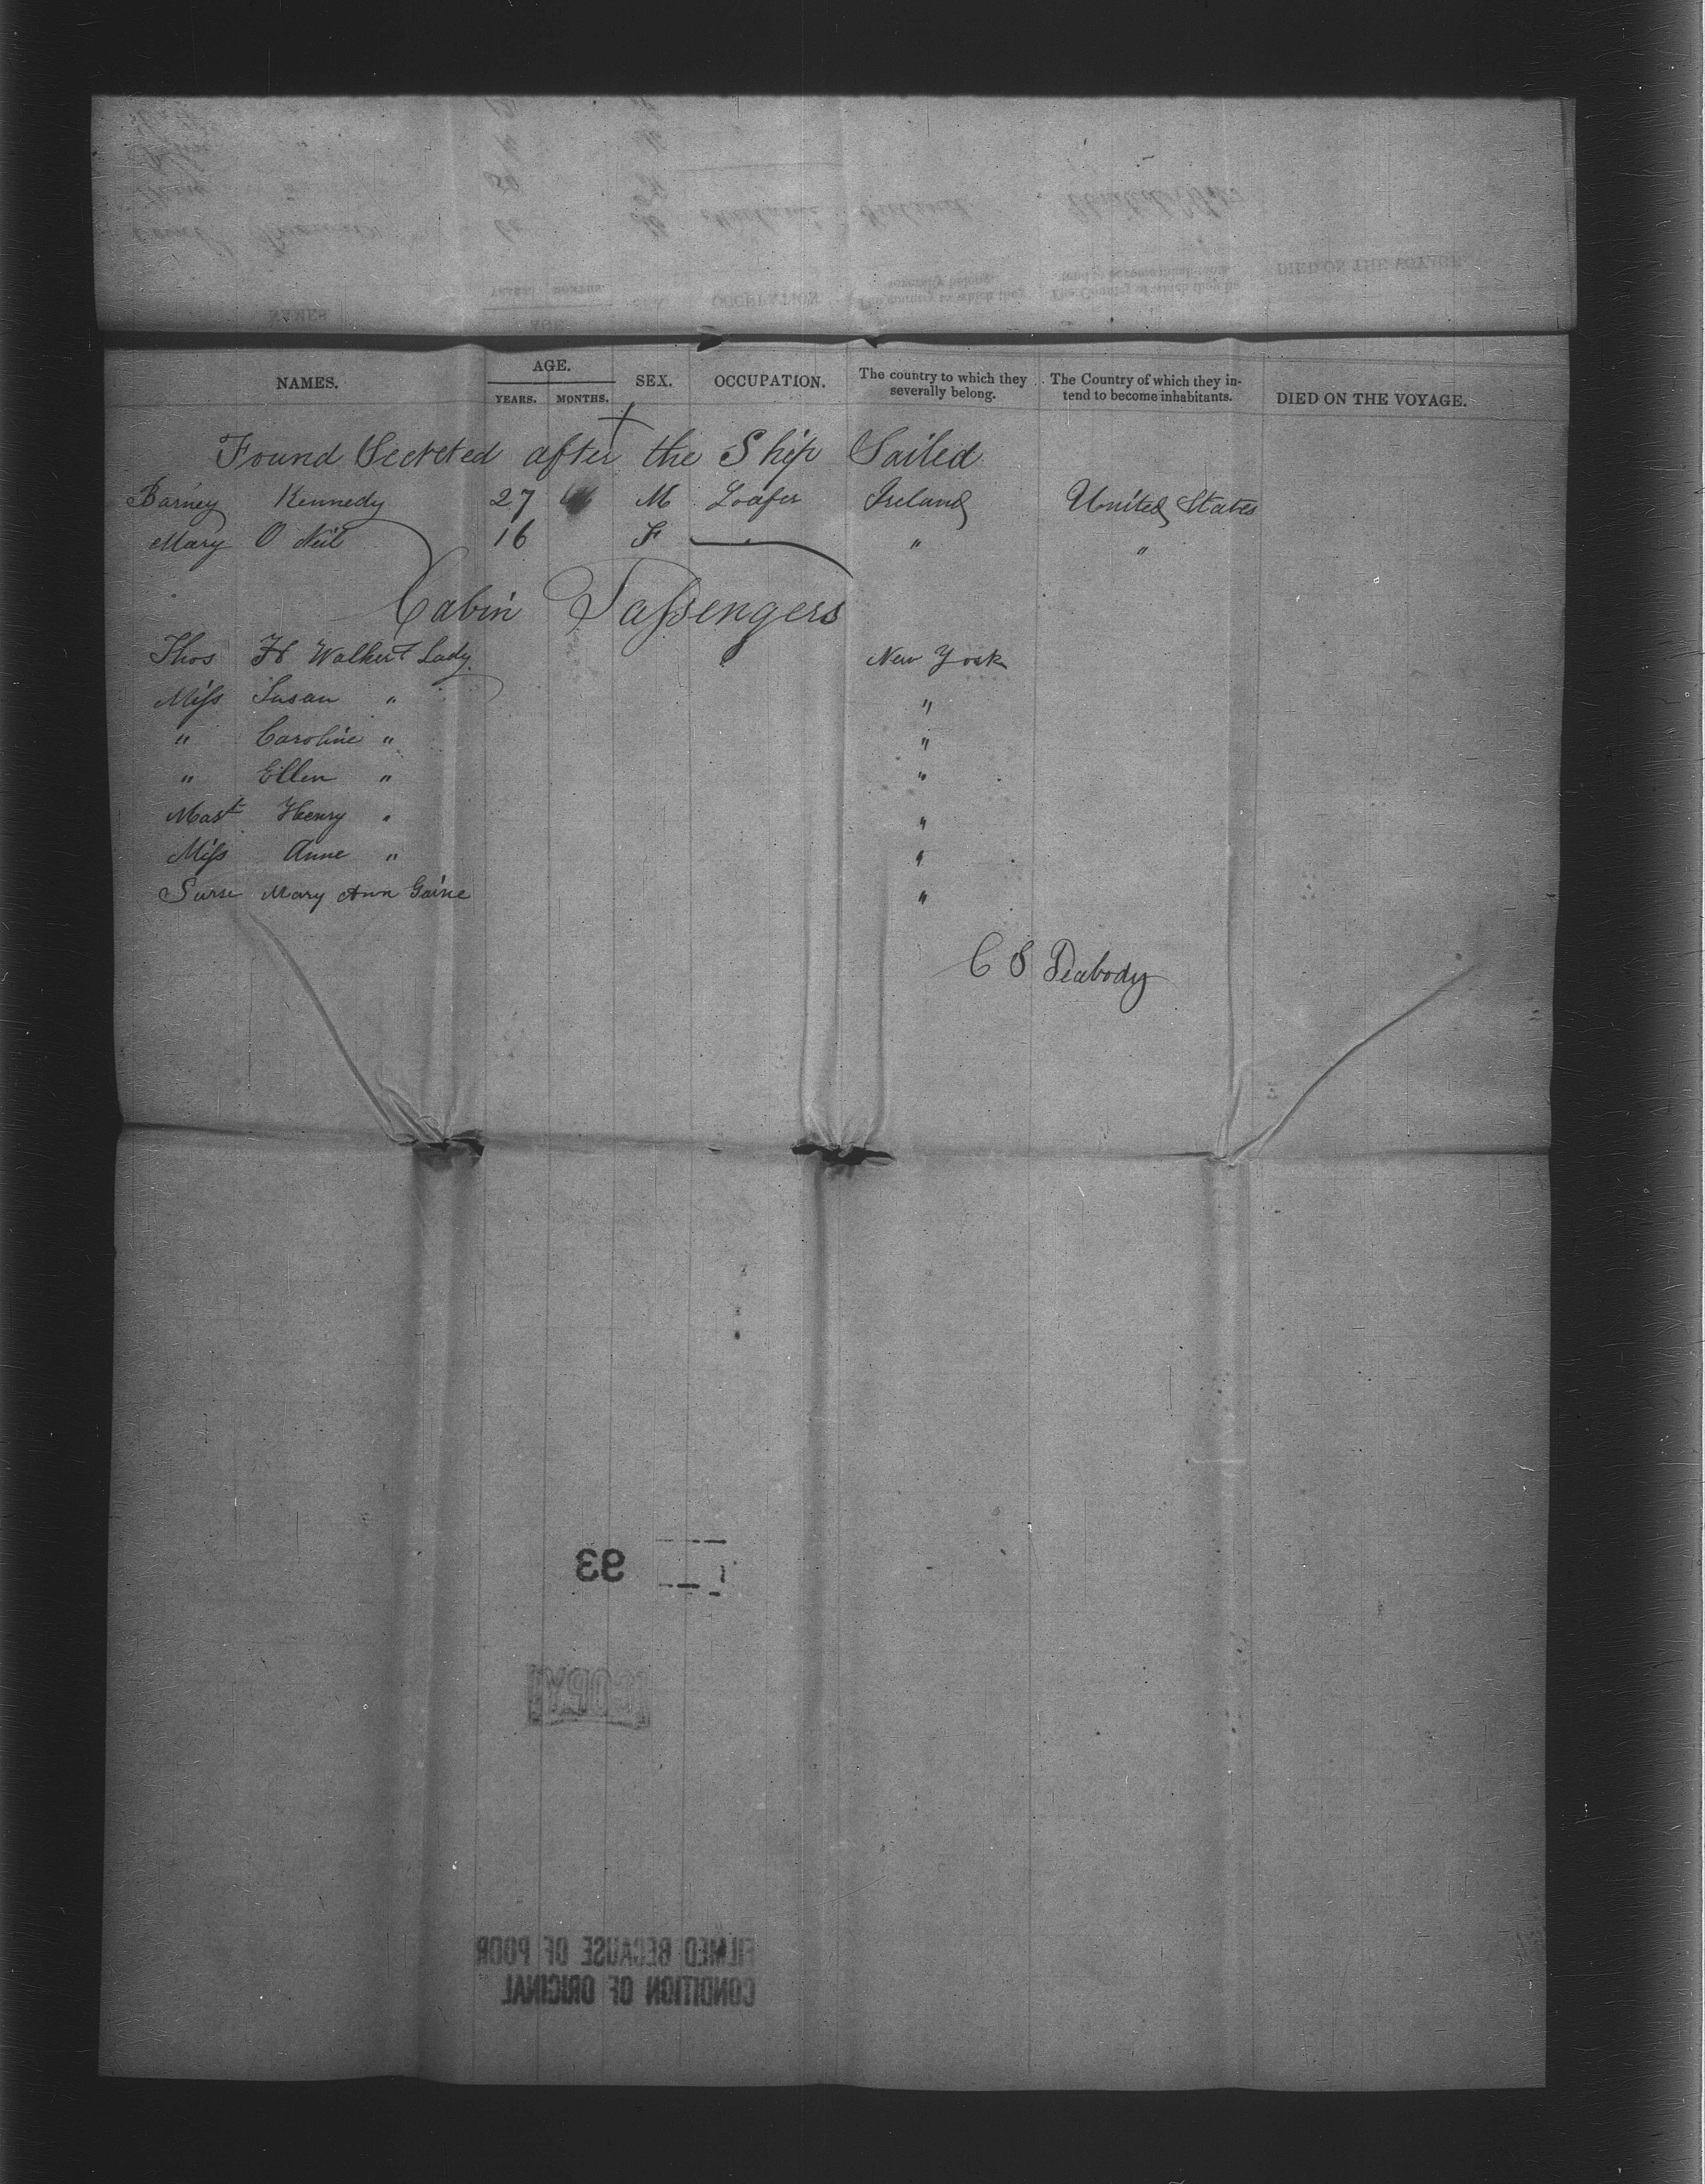 NAMES. AGE. YEARS. MONTHS. SEX. OCCUPATION. The country to which they severally belong. The Country of which they intend to become inhabitants. DIED ON THE VOYAGE.
Found Secreted after the Ship Sailed
Barney Kennedy 27 M Loafer Ireland United States
Mary O Neil 16 F " "
Cabin Passengers
Thos H Walker & Lady New York
Miss Susan " "
" Caroline " "
" Ellen " "
Mast Henry " "
Miss Anne " "
Mary Ann Gaine "
C S Peabody
93
COPY
FILMED BECAUSE OF POOR
CONDITION OF ORIGINAL